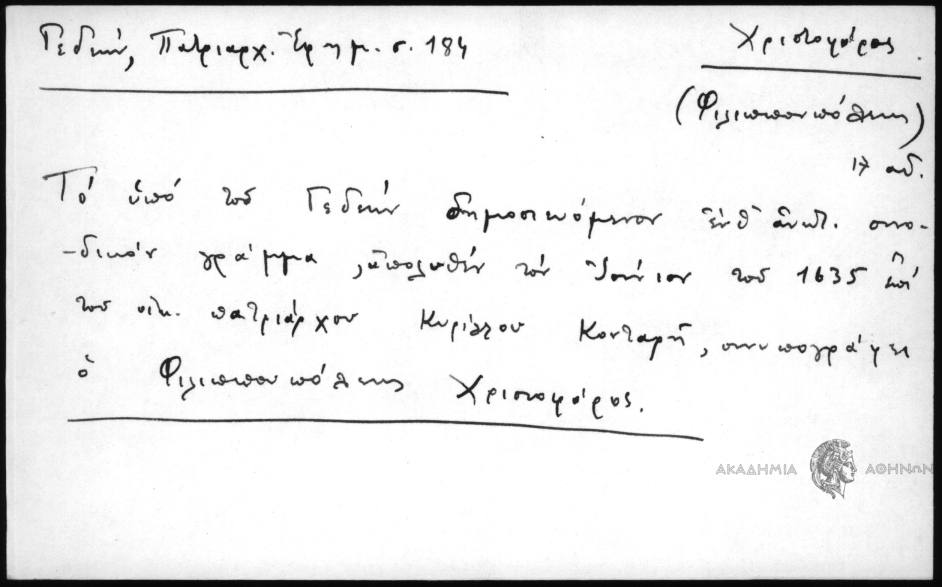 Γεδεών, Πατριαρχ. Ἐφημ. σ. 184
Χριστοφόρος
(Φιλιππουπόλεως)
17 αἰ.
Τό ὑπό τοῦ Γεδεών δημοσιευόμενον ἐνθ' ἀνωτ. συνο-
-δικόν γράμμα, ἀπολυθέν τόν Ἰούνιον τοῦ 1635 ἐπί
τοῦ οἰκ. πατριάρχου Κυρίλλου Κονταρῆ, συνυπογράφει
ὁ Φιλιππουπόλεως Χριστοφόρος.
ΑΚΑΔΗΜΙΑ ΑΘΗΝΩΝ